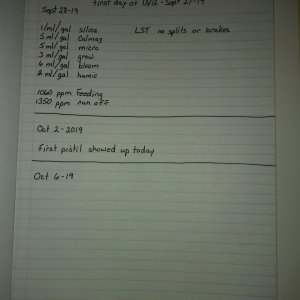 first day of 12/12 - Sept 27-19
Sept 28-19
1/ml/gal silica LST no splits or brakes
5 ml/gal Calmag
5 ml/gal micro
3 ml/gal grow
6 ml/gal bloom
ml/gal humic
1060 ppm Feeding
1350 ppm run off
Oct 2-2019
first pistil showed up today
Oct. 6-19